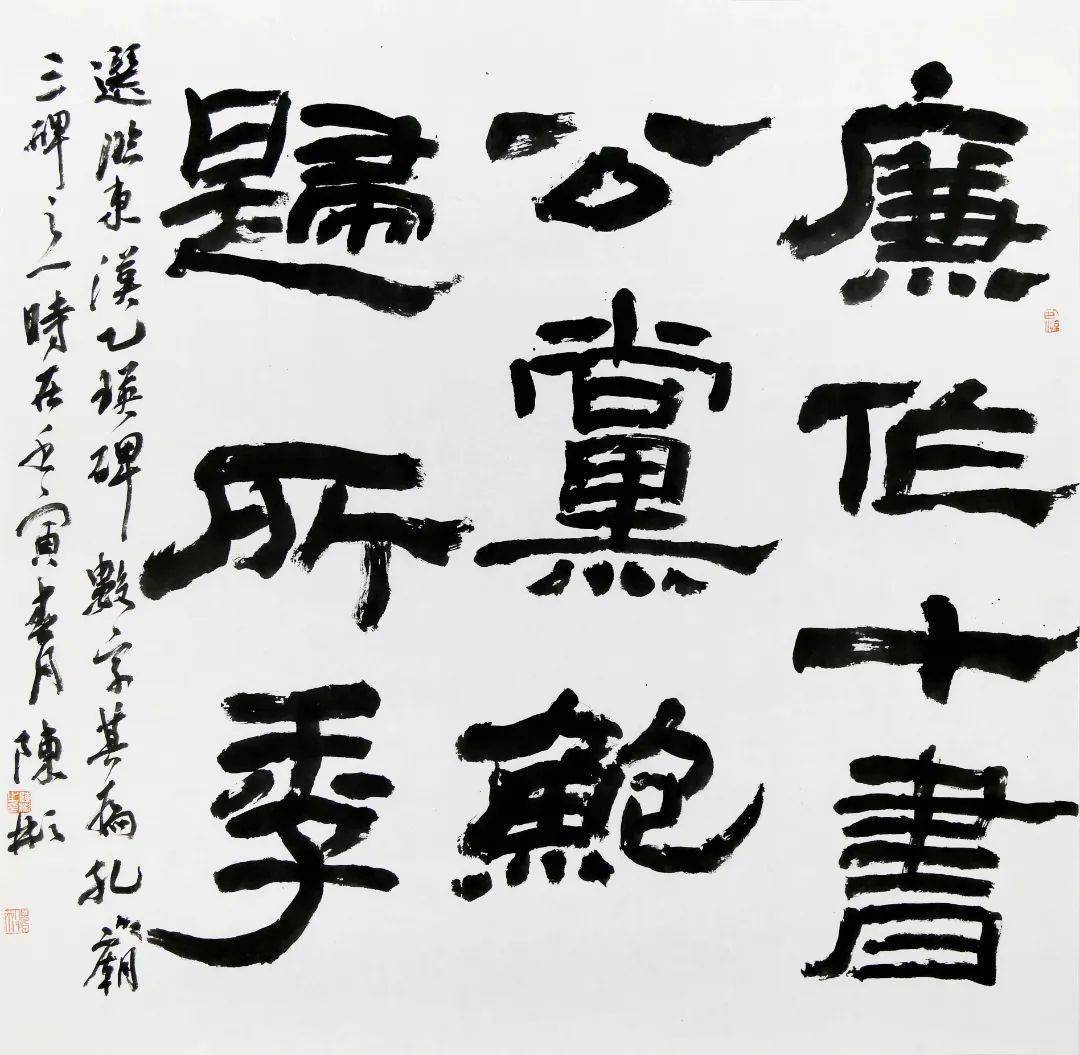 廉作十書
公黨鮑
歸所季
選臨東漢乙瑛碑數字其為孔廟
三碑之一時在壬寅春月陳彬